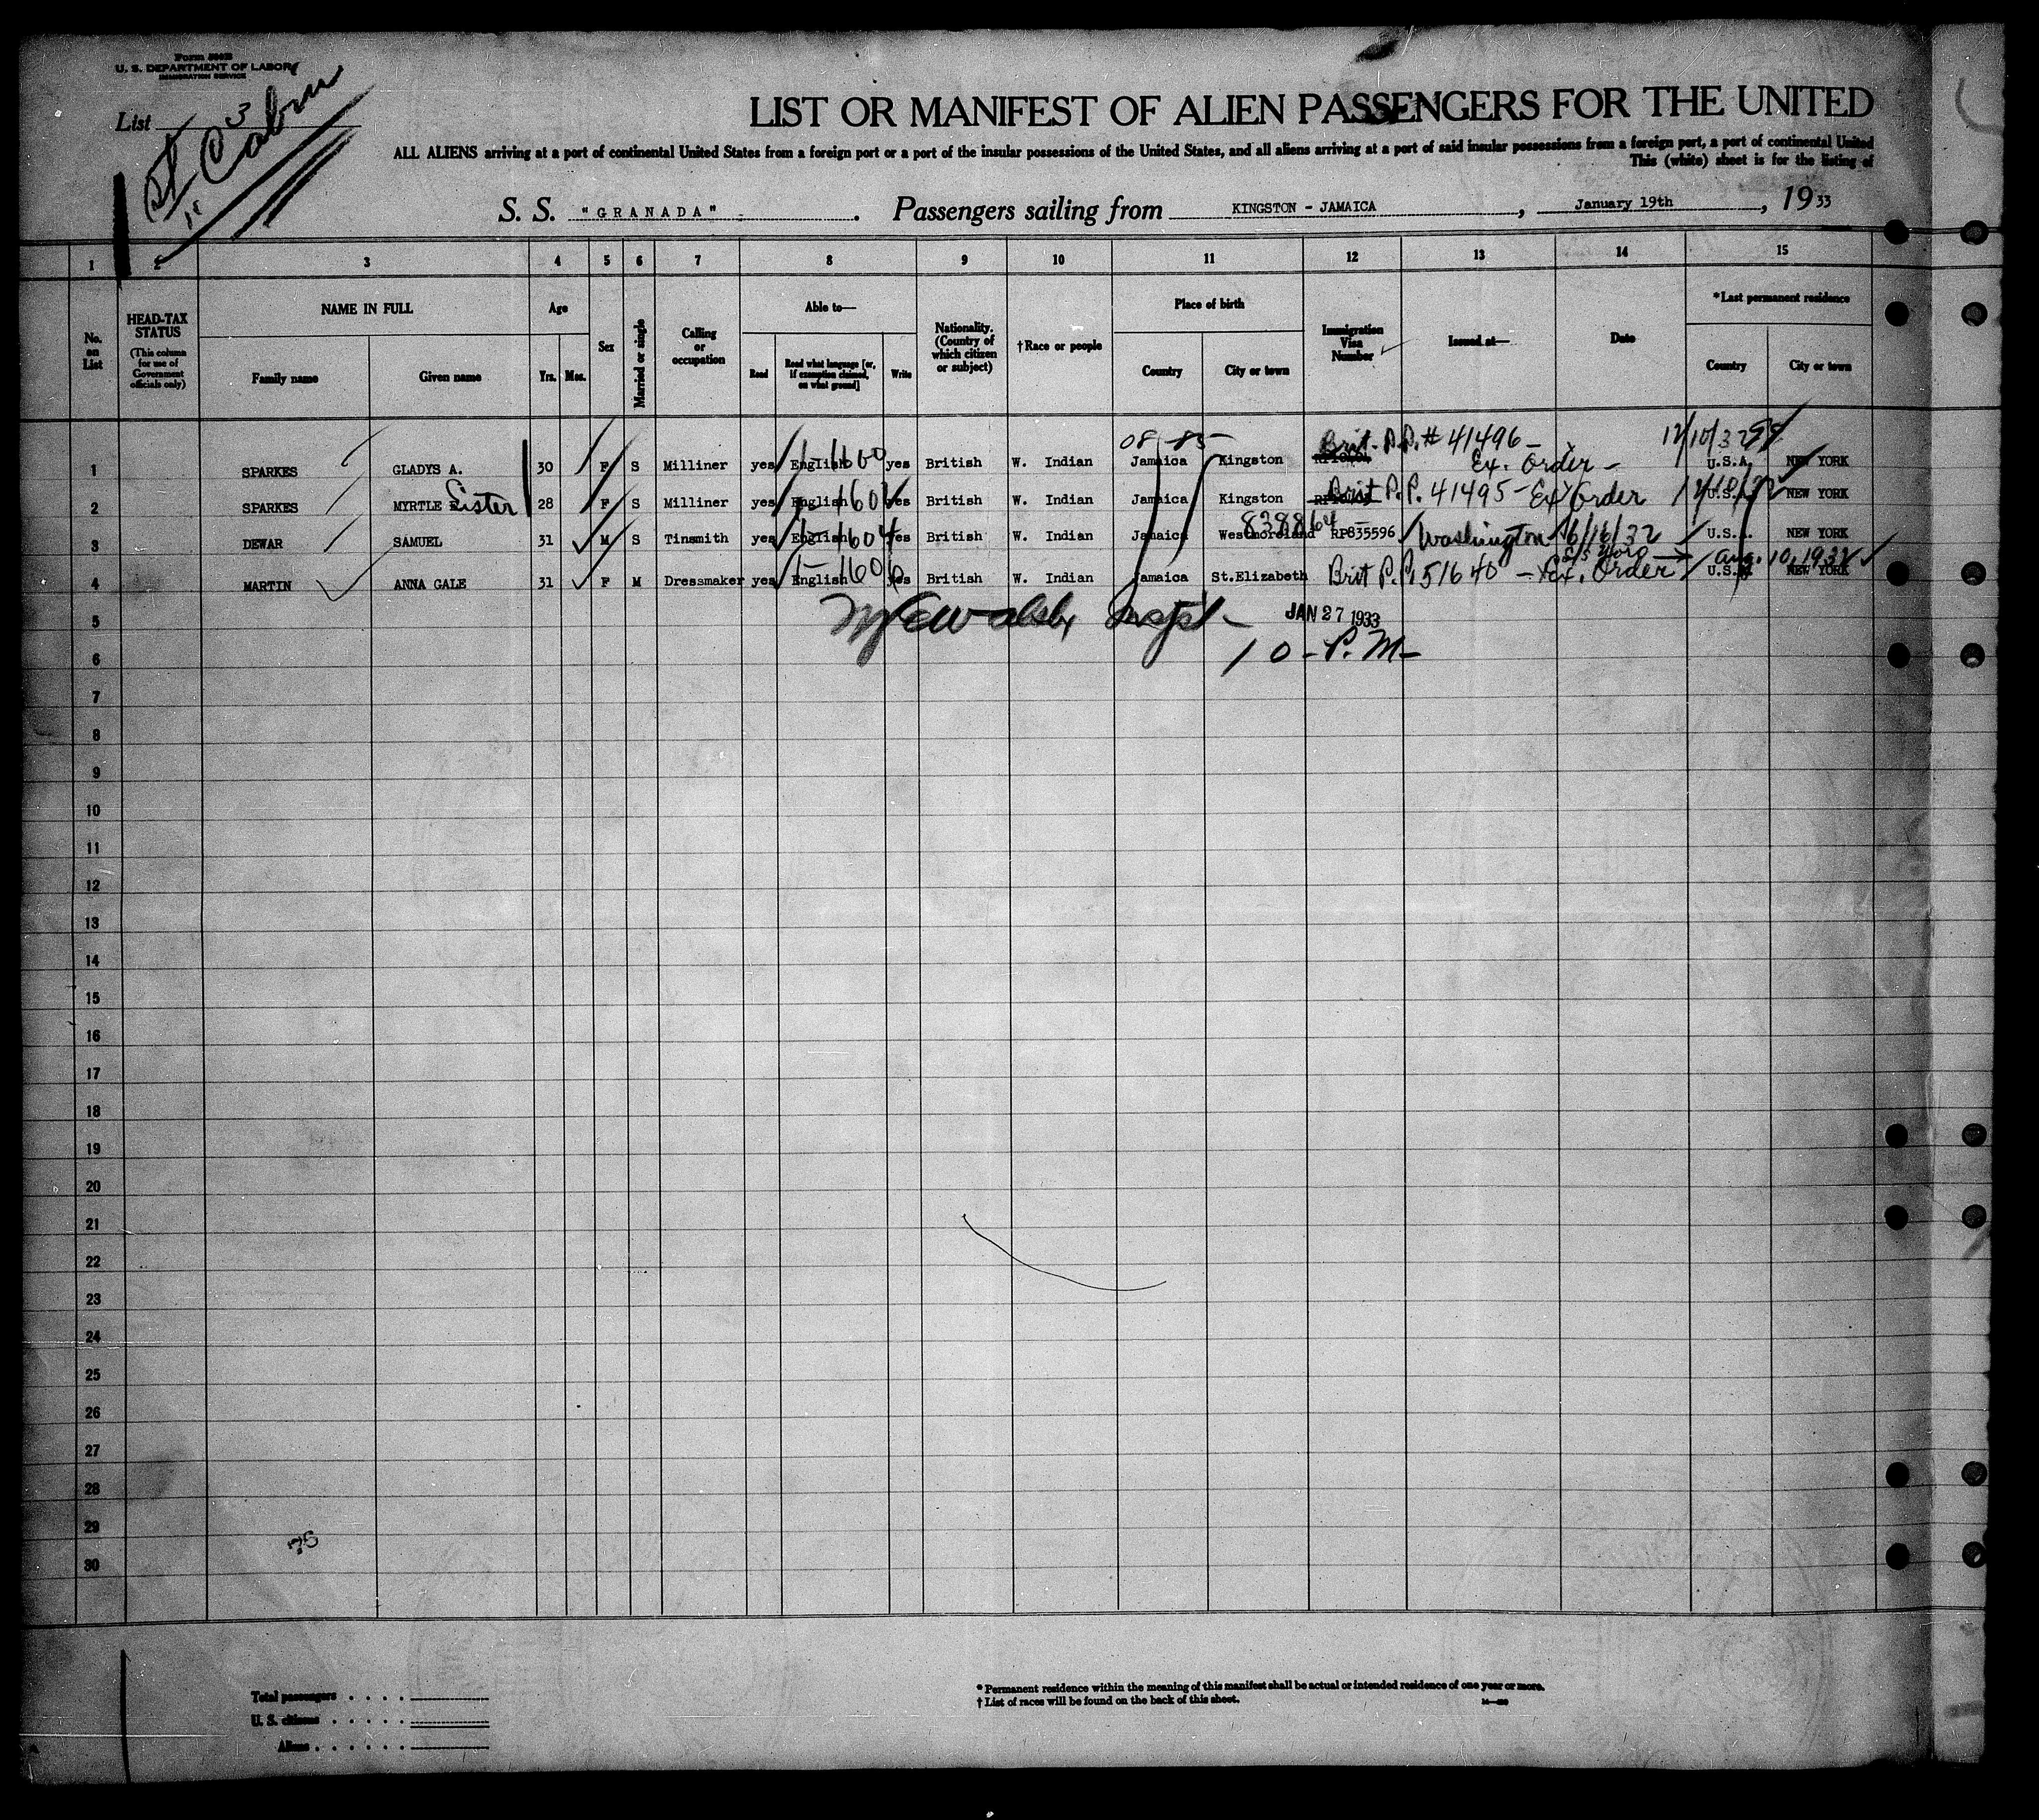 Form 500 B
U. S. DEPARTMENT OF LABOR
IMMIGRATION SERVICE
List 3
1st Cabin
LIST OR MANIFEST OF ALIEN PASSENGERS FOR THE UNITED
ALL ALIENS arriving at a port of continental United States from a foreign port or a port of the insular possessions of the United States, and all aliens arriving at a port of said insular possessions from a foreign port, a port of continental United
This (white) sheet is for the listing of
S. S. "GRANADA". Passengers sailing from KINGSTON - JAMAICA, January 19th, 1933
1 2 3 4 5 6 7 8 9 10 11 12 13 14 15
No. on List
HEAD-TAX STATUS (This column for use of Government officials only)
NAME IN FULL
Family name Given name
Age
Yrs. Mos.
Sex
Married or single
Calling or occupation
Able to—
Read Read what language [or, if exemption claimed, on what ground] Write
Nationality. (Country of which citizen or subject)
†Race or people
Place of birth
Country City or town
Immigration Visa Number
Issued at—
Date
*Last permanent residence
Country City or town
08-85 Brit. P.P. # 41496 - 12/10/32
1 SPARKES GLADYS A. 30 F S Milliner yes English yes British W. Indian Jamaica Kingston Ex. Order - U.S.A. NEW YORK
2 SPARKES MYRTLE Sister 28 F S Milliner yes English yes British W. Indian Jamaica Kingston Brit P.P. 41495 - Ex Order 12/10/32 U.S.A. NEW YORK
3 DEWAR SAMUEL 31 M S Tinsmith yes English yes British W. Indian Jamaica Westmoreland RP835596 Washington 6/16/32 U.S.A. NEW YORK
4 MARTIN ANNA GALE 31 F M Dressmaker yes English yes British W. Indian Jamaica St.Elizabeth Brit P.P. 51640 - Ex. Order Aug. 10, 1932 U.S.A. NEW YORK
5 Inspt - JAN 27 1933
6 10 - P.M -
7
8
9
10
11
12
13
14
15
16
17
18
19
20
21
22
23
24
25
26
27
28
29
30
Total passengers . . . .
U. S. citizens . . . . .
Aliens . . . . . .
* Permanent residence within the meaning of this manifest shall be actual or intended residence of one year or more.
† List of races will be found on the back of this sheet.